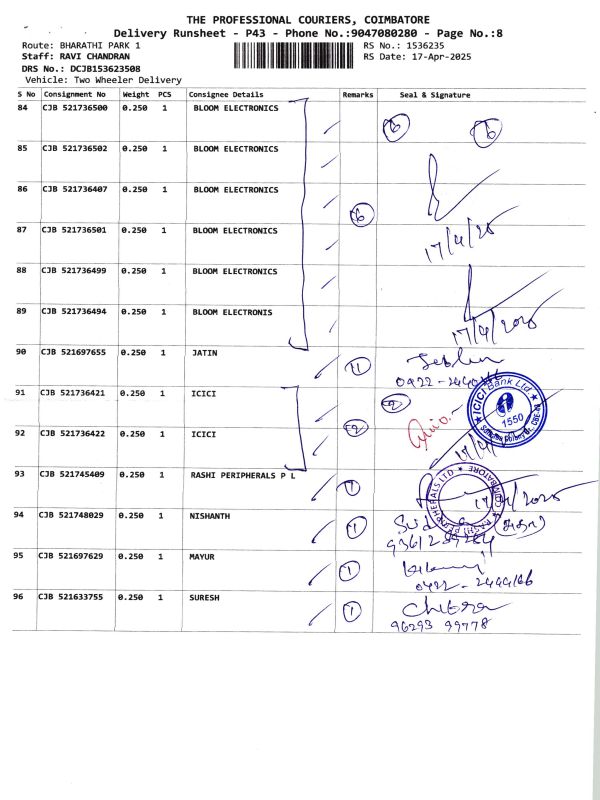 THE PROFESSIONAL COURIERS, COIMBATORE
Delivery Runsheet - P43 - Phone No.:9047080280 - Page No.:8
Route: BHARATHI PARK 1 RS No.: 1536235
Staff: RAVI CHANDRAN RS Date: 17-Apr-2025
DRS No.: DCJB153623508
Vehicle: Two Wheeler Delivery
S No Consignment No Weight PCS Consignee Details Remarks Seal & Signature
84 CJB 521736500 0.250 1 BLOOM ELECTRONICS
6 6
85 CJB 521736502 0.250 1 BLOOM ELECTRONICS
86 CJB 521736407 0.250 1 BLOOM ELECTRONICS
6
87 CJB 521736501 0.250 1 BLOOM ELECTRONICS
17/4/25
88 CJB 521736499 0.250 1 BLOOM ELECTRONICS
89 CJB 521736494 0.250 1 BLOOM ELECTRONIS
17/4/2025
90 CJB 521697655 0.250 1 JATIN
0422-2444166
91 CJB 521736421 0.250 1 ICICI
2 ICICI Bank Ltd 1550
92 CJB 521736422 0.250 1 ICICI 2
93 CJB 521745409 0.250 1 RASHI PERIPHERALS P L 1
17/4/2025
RASHI PERIPHERALS LTD COIMBATORE
94 CJB 521748029 0.250 1 NISHANTH 1
95 CJB 521697629 0.250 1 MAYUR 1
0422-2444166
96 CJB 521633755 0.250 1 SURESH 1 Chitra
96293 99778